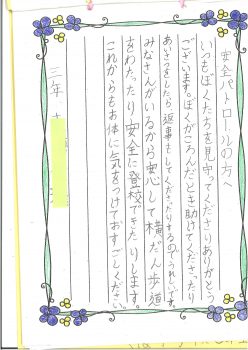 安全パトロールの方へ
いつもぼくたちを見守ってくださりありがとう
ございます。ぼくがころんだとき助けてくださったり
あいさつをしたら返事をしてくださったりするのでうれしいです。
みなさんがいるから安心して横だん歩道
をわたったり安全に登校できたりします。
これからもお体に気をつけておすごしください。
三年